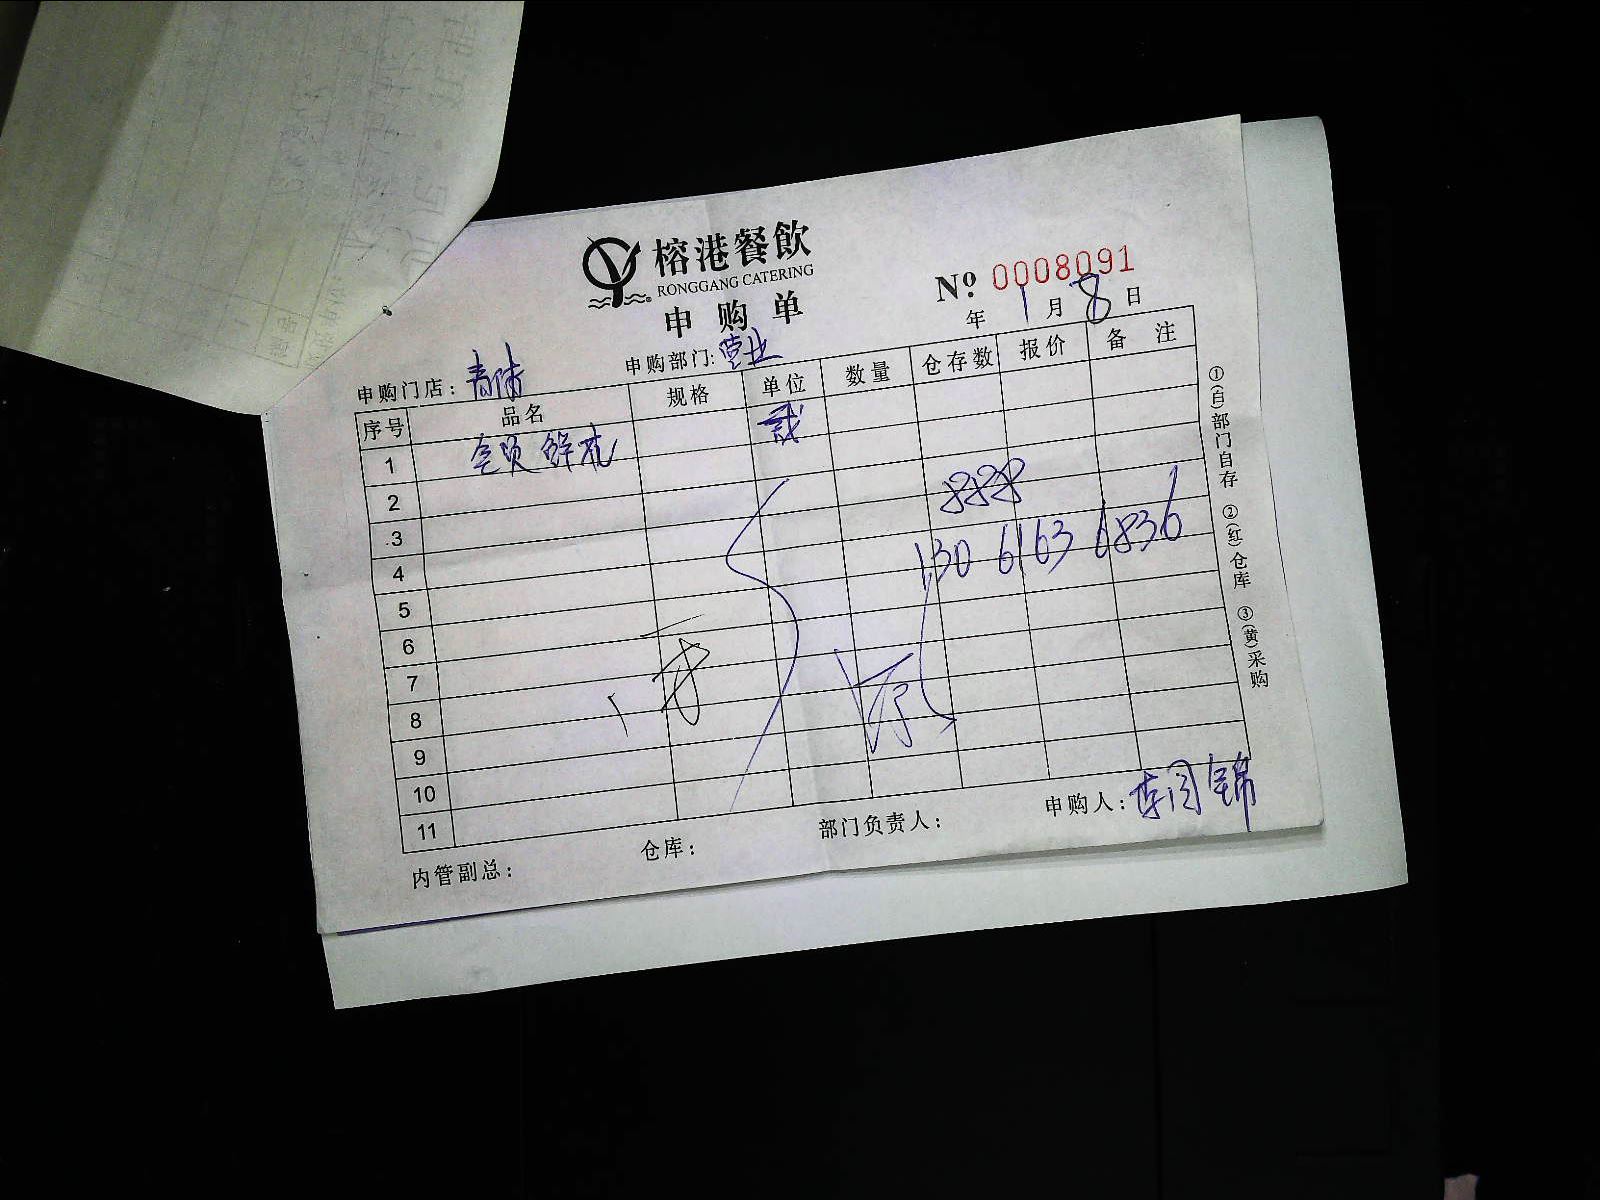 榕港餐飲
RONGGANG CATERING
申购单
№ 0008091
年 1 月 8 日
申购门店：
申购部门：营业
序号 品名 规格 单位 数量 仓存数 报价 备注
1 鲜花
2
3
4
130 6163 6836
5
6
7
8
9
10
11
内管副总： 仓库： 部门负责人： 申购人：
①(白)部门自存 ②(红)仓库 ③(黄)采购